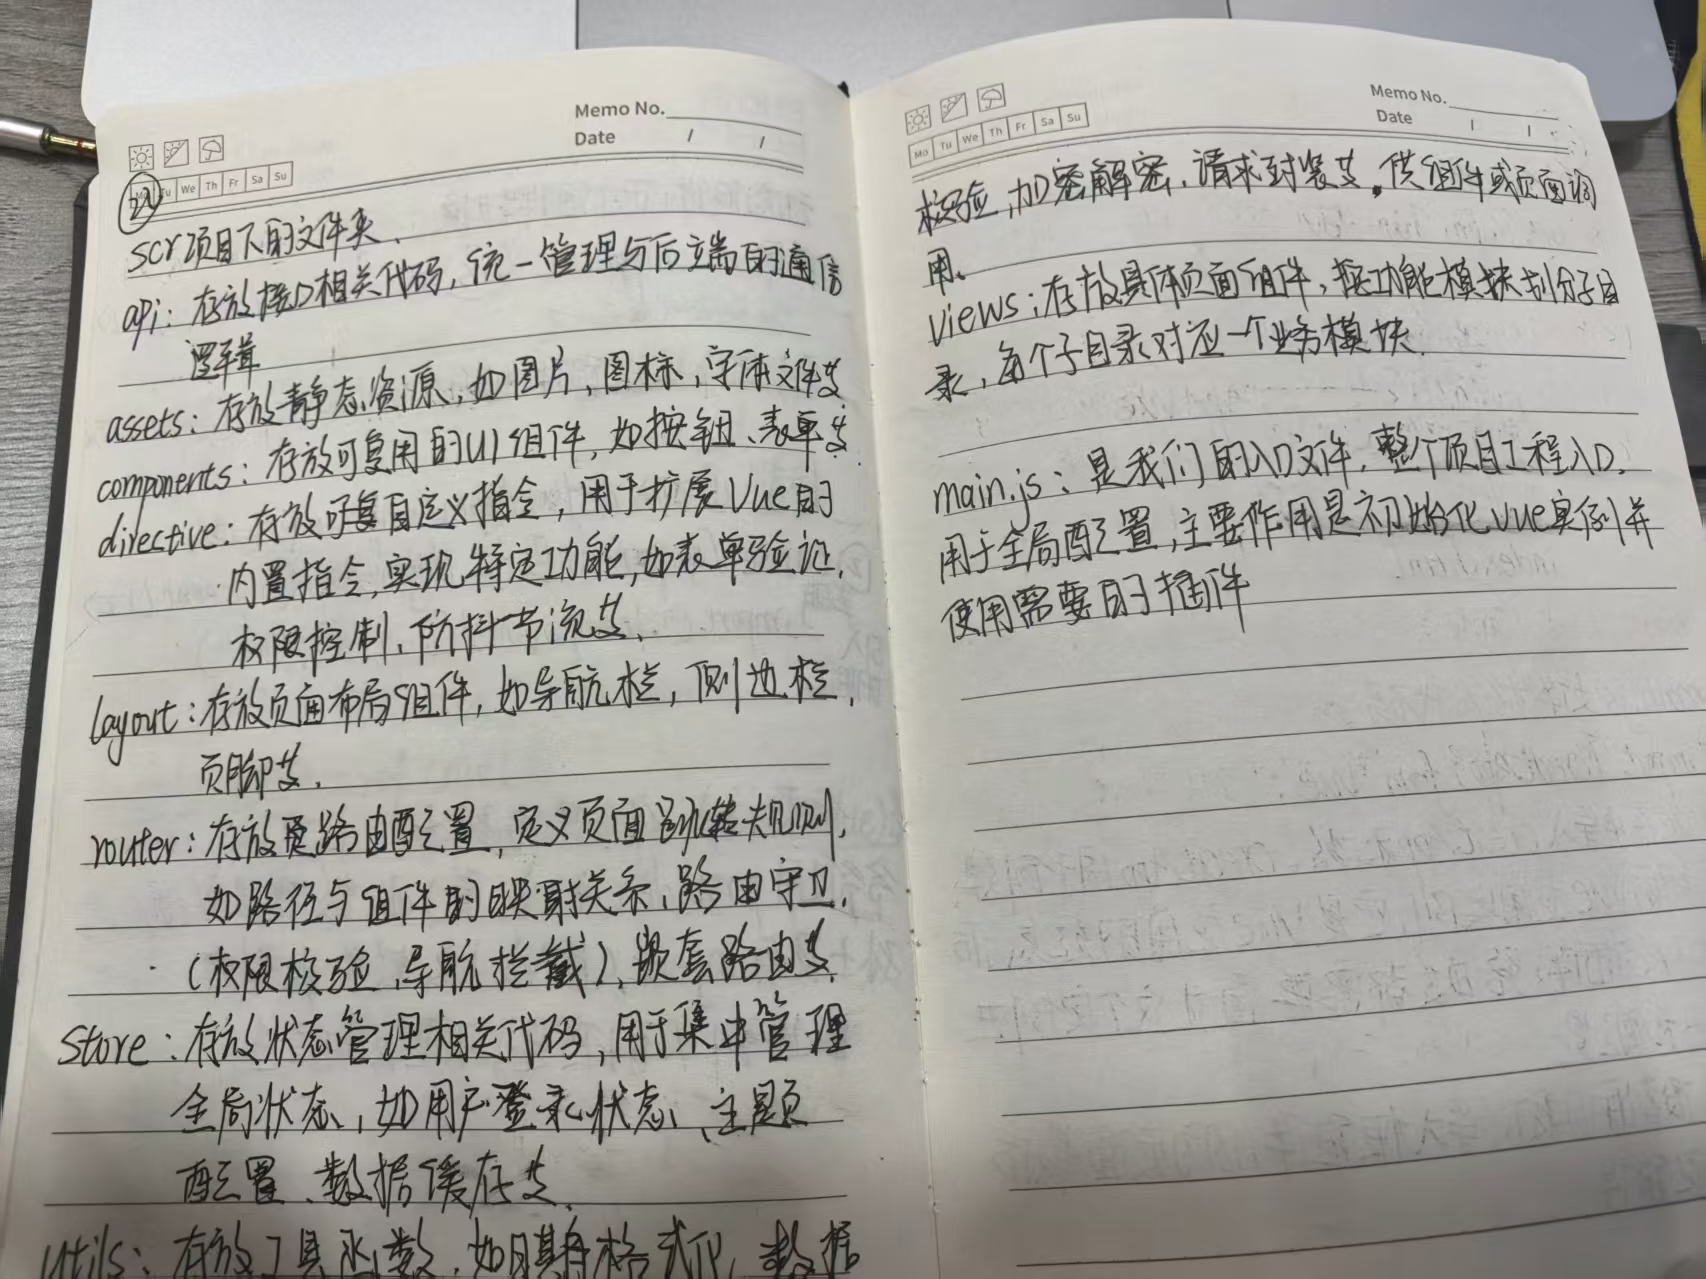 Memo No.
Date / /
Mo Tu We Th Fr Sa Su
22
scr项目下的文件夹.
api: 存放接口相关代码, 统一管理与后端的通信
逻辑
assets: 存放静态资源, 如图片, 图标, 字体文件等
components: 存放可复用的UI组件, 如按钮、表单等.
directive: 存放可复自定义指令, 用于扩展Vue的
内置指令, 实现特定功能, 如表单验证,
权限控制, 防抖节流等.
layout: 存放页面布局组件, 如导航栏, 侧边栏,
页脚等.
router: 存放路由配置, 定义页面跳转规则,
如路径与组件的映射关系, 路由守卫,
(权限校验, 导航拦截), 嵌套路由等.
Store: 存放状态管理相关代码, 用于集中管理
全局状态, 如用户登录状态、主题
配置、数据缓存等.
utils: 存放工具函数, 如日期格式化, 数据
Memo No.
Date / /
Mo Tu We Th Fr Sa Su
校验, 加密解密, 请求封装等, 供组件或页面调
用.
views: 存放具体页面组件, 按功能模块划分子目
录, 每个子目录对应一个业务模块.
main.js: 是我们的入口文件, 整个项目工程入口.
用于全局配置, 主要作用是初始化Vue单例并
使用需要的插件